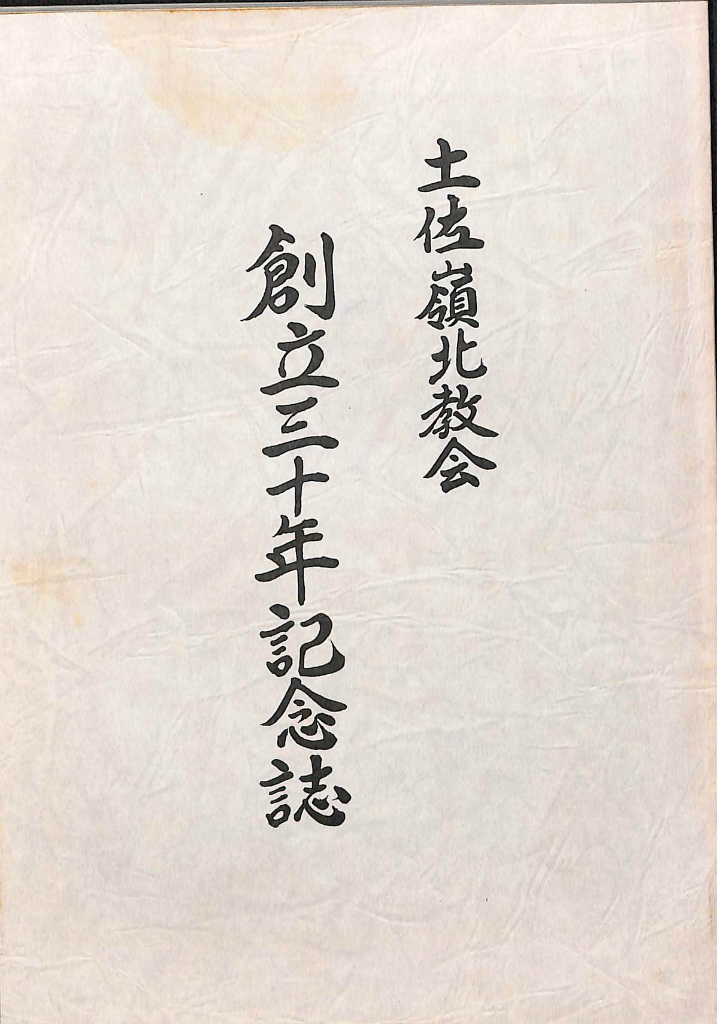 土佐嶺北教会
創立三十年記念誌